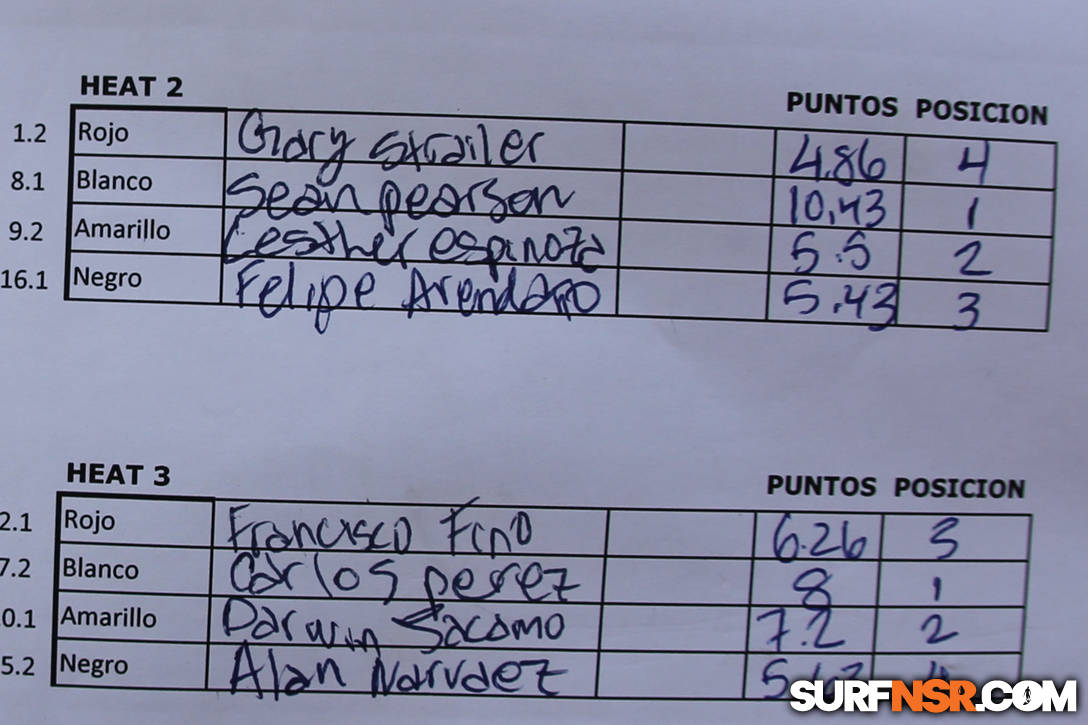 HEAT 2
PUNTOS POSICION
1.2 Rojo Gary Strailer 4.86 4
8.1 Blanco Sean pearson 10.43 1
9.2 Amarillo Lesther espinoza 5.5 2
16.1 Negro Felipe Arendaño 5.43 3
HEAT 3
PUNTOS POSICION
2.1 Rojo Francisco Fino 6.26 3
7.2 Blanco Carlos perez 8 1
0.1 Amarillo Darwin Sacomo 7.2 2
5.2 Negro Alan Narvaez
SURFNSR.COM